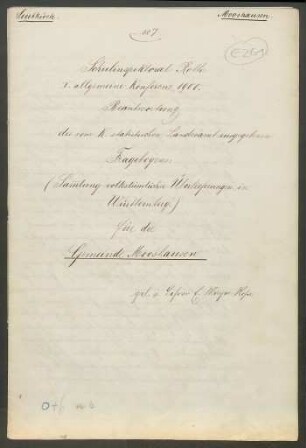 Leutkirch.
Mooshausen.
107
Schulinspektorat Roth
I. allgemeine Konferenz, 1900.
Beantwortung
des vom K. statistischen Landesamt ausgegebenen
Fragebogens
(Samlung volkstümlicher Überlieferungen in
Württemberg.)
für die
Gemeinde Mooshausen
gel. v.